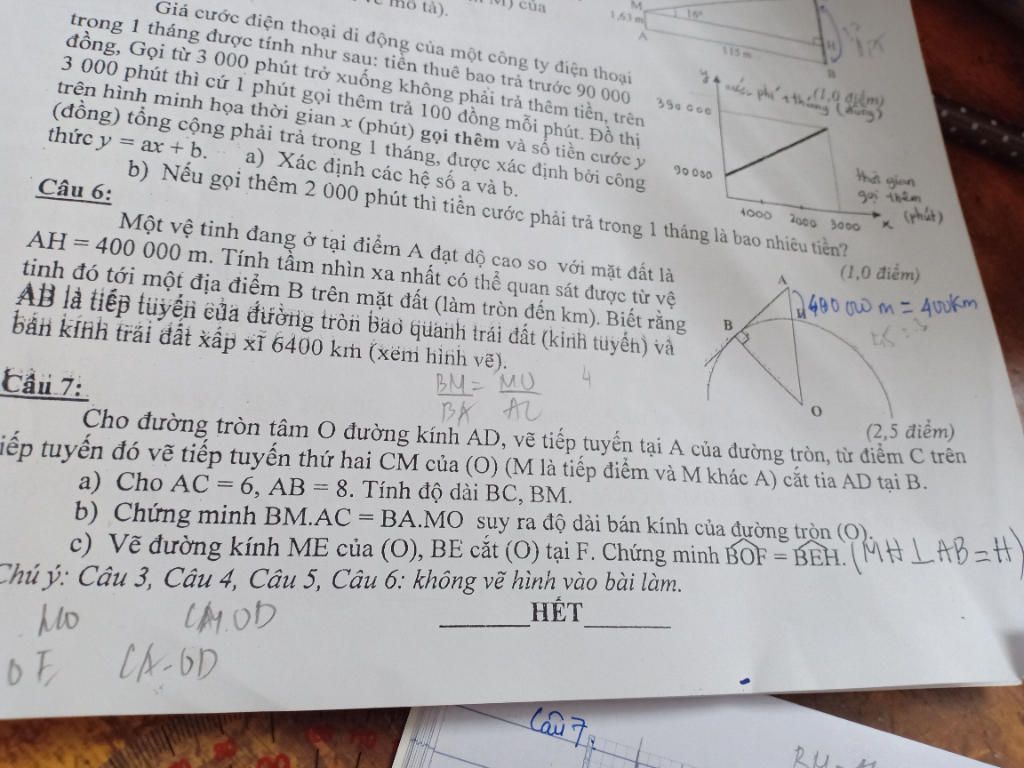 mô tả).
của
M
1,63 m
16°
A
115 m
H
B
Giá cước điện thoại di động của một công ty điện thoại
trong 1 tháng được tính như sau: tiền thuê bao trả trước 90 000
đồng, Gọi từ 3 000 phút trở xuống không phải trả thêm tiền, trên
3 000 phút thì cứ 1 phút gọi thêm trả 100 đồng mỗi phút. Đồ thị
trên hình minh họa thời gian x (phút) gọi thêm và số tiền cước y
(đồng) tổng cộng phải trả trong 1 tháng, được xác định bởi công
thức y = ax + b. a) Xác định các hệ số a và b.
b) Nếu gọi thêm 2 000 phút thì tiền cước phải trả trong 1 tháng là bao nhiêu tiền?
(1,0 điểm)
y
cước phí tháng (đồng)
390 000
90 000
1000 2000 3000 x
thời gian
gọi thêm
(phút)
Câu 6:
(1,0 điểm)
Một vệ tinh đang ở tại điểm A đạt độ cao so với mặt đất là
AH = 400 000 m. Tính tầm nhìn xa nhất có thể quan sát được từ vệ
tinh đó tới một địa điểm B trên mặt đất (làm tròn đến km). Biết rằng
AB là tiếp tuyến của đường tròn bao quanh trái đất (kinh tuyến) và
bán kính trái đất xấp xĩ 6400 km (xem hình vẽ).
A
H
400 000 m = 400km
B
O
BM = MO
BA AC
4
Câu 7:
(2,5 điểm)
Cho đường tròn tâm O đường kính AD, vẽ tiếp tuyến tại A của đường tròn, từ điểm C trên
tiếp tuyến đó vẽ tiếp tuyến thứ hai CM của (O) (M là tiếp điểm và M khác A) cắt tia AD tại B.
a) Cho AC = 6, AB = 8. Tính độ dài BC, BM.
b) Chứng minh BM.AC = BA.MO suy ra độ dài bán kính của đường tròn (O).
c) Vẽ đường kính ME của (O), BE cắt (O) tại F. Chứng minh BOF = BEH. (MH⊥AB=H)
Chú ý: Câu 3, Câu 4, Câu 5, Câu 6: không vẽ hình vào bài làm.
HẾT
MO CM.OD
OE CA-OD
Câu 7: